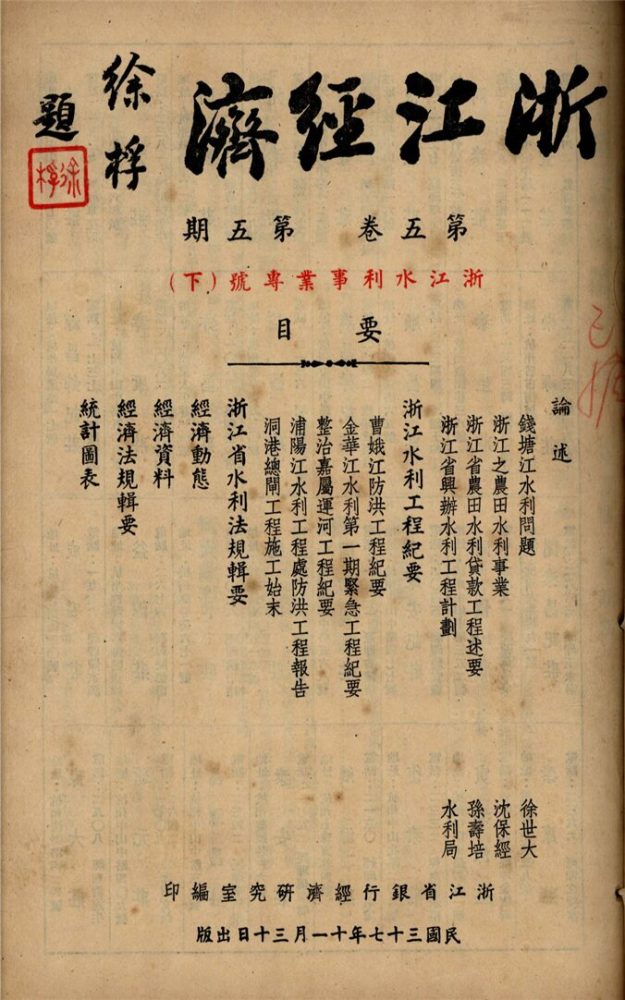 浙江經濟
徐桴
題
徐桴
第五卷 第五期
浙江水利事業專號(下)
要目
論述
錢塘江水利問題 徐世大
浙江之農田水利事業 沈保經
浙江省農田水利貸款工程述要 孫壽培
浙江省興辦水利工程計劃 水利局
浙江水利工程紀要
曹娥江防洪工程紀要
金華江水利第一期緊急工程紀要
整治嘉屬運河工程紀要
浦陽江水利工程處防洪工程報告
洞港總閘工程施工始末
浙江省水利法規輯要
經濟動態
經濟資料
經濟法規輯要
統計圖表
浙江省銀行經濟研究室編印
民國三十七年十一月三十日出版